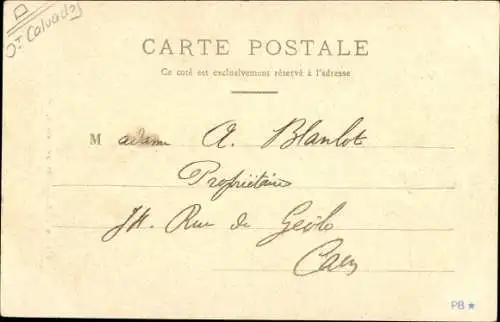 Dt Calvados
CARTE POSTALE
Ce coté est exclusivement réservé à l'adresse
Madame A. Blanlot
Propriétaire
Rue de Geôle
Caen
PB ★